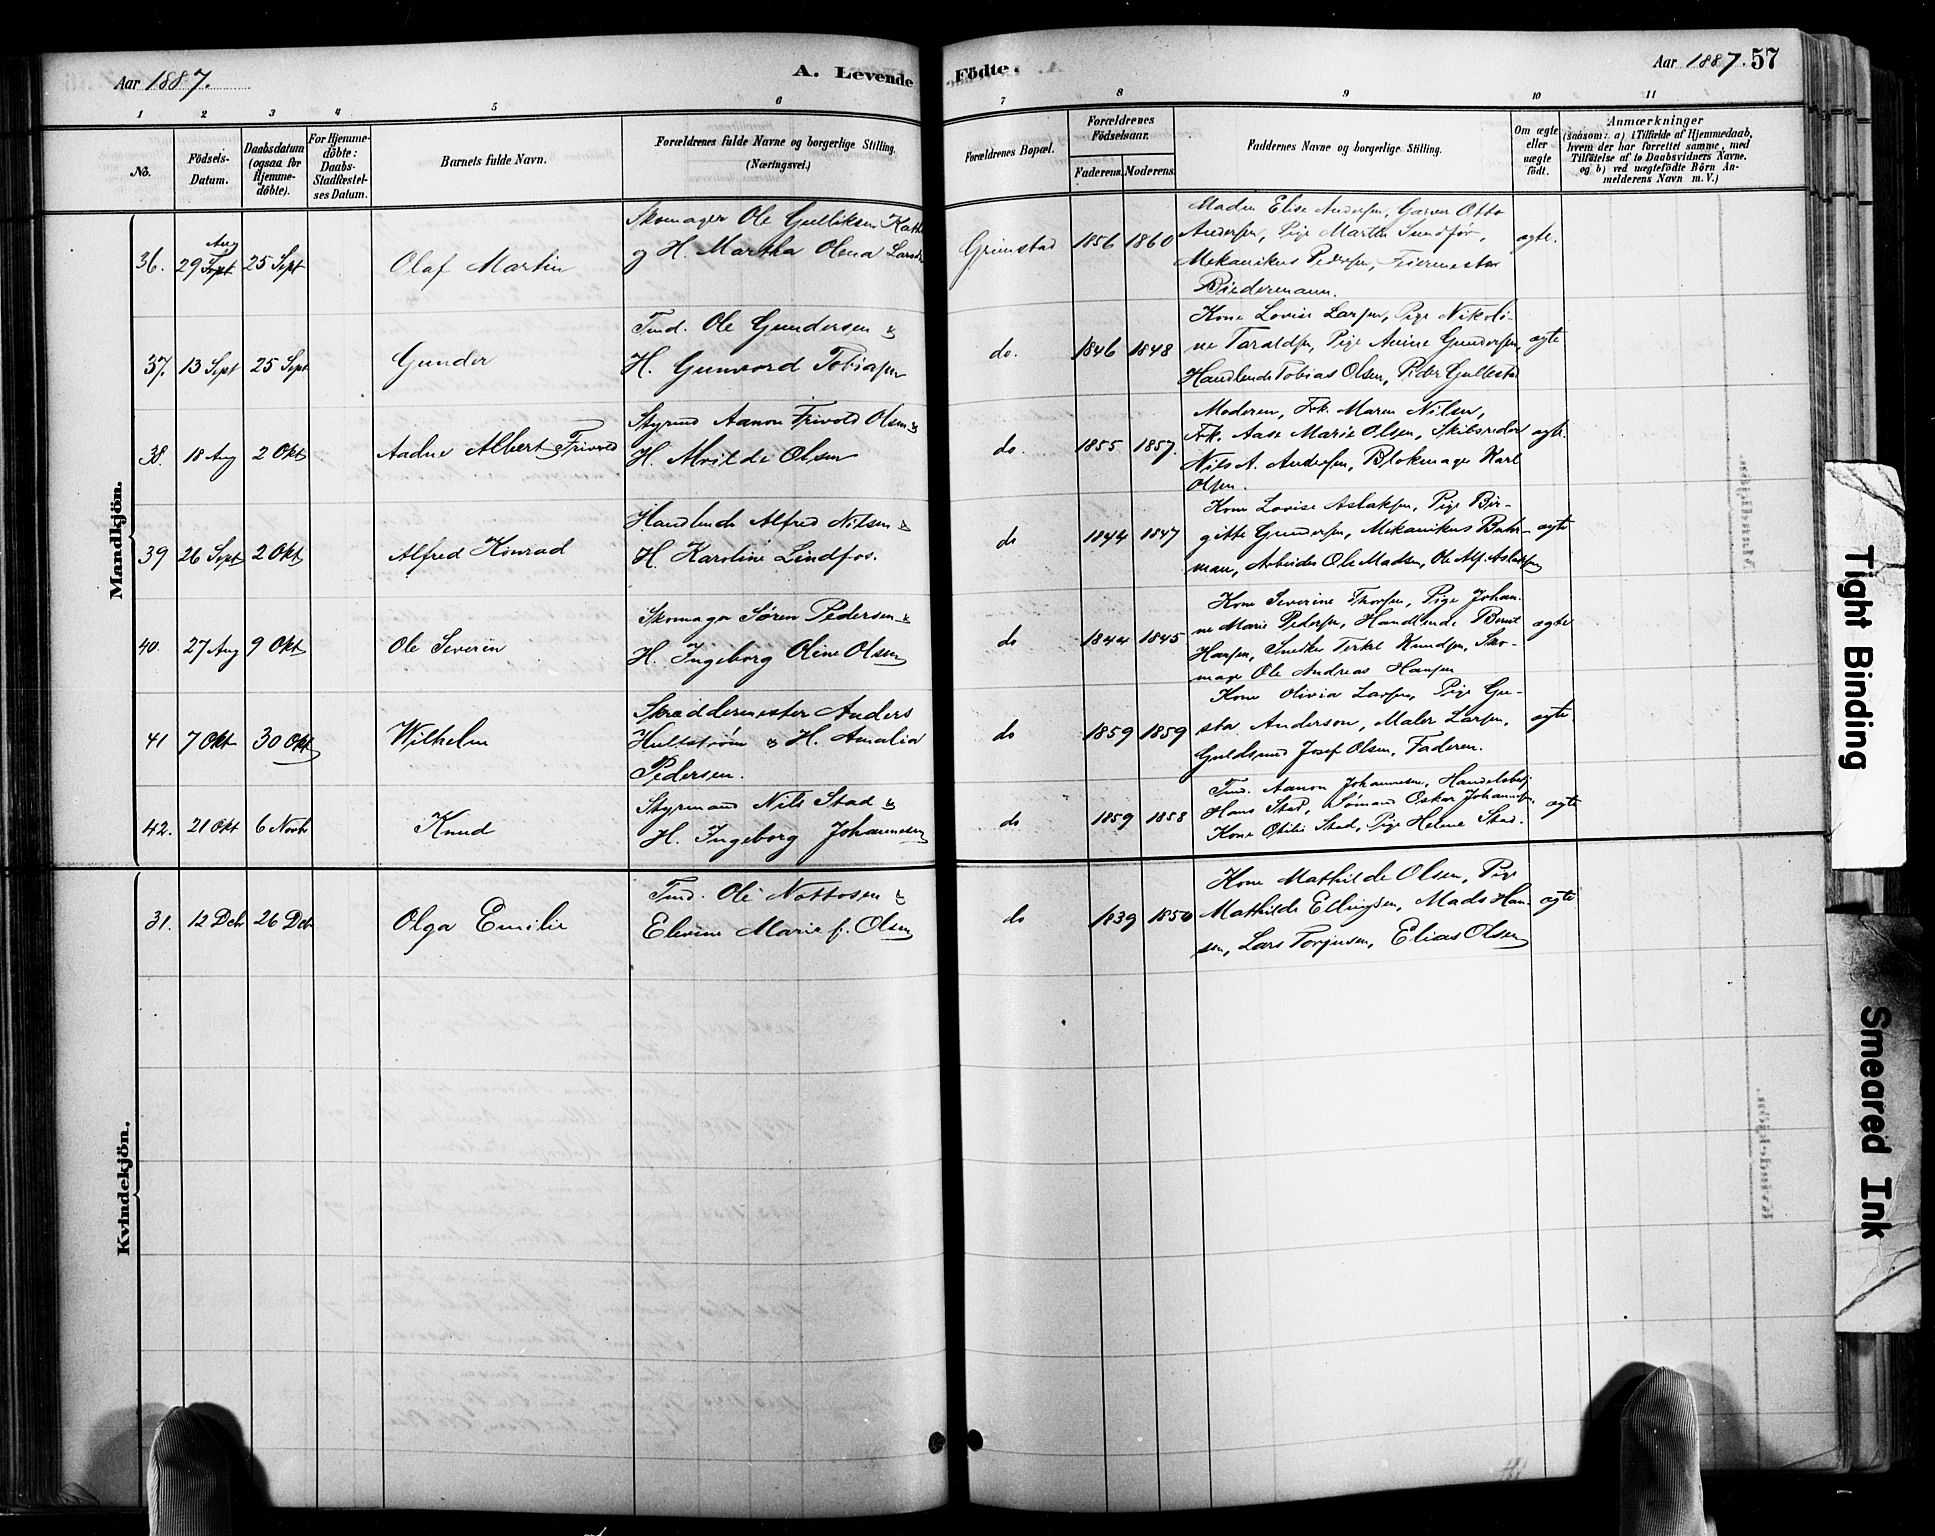 Aar 1887.
A. Levende Födte.
Aar 1887. 57
1 2 3 4 5 6 7 8 9 10 11
No.
Födsels-
Datum.
Daabsdatum
(ogsaa for
Hjemme-
döbte).
For Hjemme-
döbte:
Daabs-
Stadfæstel-
ses Datum.
Barnets fulde Navn.
Forældrenes fulde Navne og borgerlige Stilling.
(Næringsvei.)
Forældrenes Bopæl.
Forældrenes
Födselsaar.
Faderens. Moderens.
Faddernes Navne og borgerlige Stilling.
Om ægte
eller
uægte
födt.
Anmærkninger
(saasom: a) i Tilfælde af Hjemmedaab,
hvem der har forrettet samme, med
Tilföielse af to Daabsvidners Navne.
og b) ved uægtefödte Börn An-
melderens Navn m. V.)
Mandkjön.
36. 29 Sept Aug 25 Sept Olaf Martin
Skomager Ole Gulliksen
og H. Martha Olena
Grimstad 1856 1860
Madm Elise Andersen, Garver Otto
Andersen, Pige Marthe Sundför,
Mekanikus Pedersen, Feiermester
Biedermann.
ægte.
37. 13 Sept 25 Sept Gunder
Tmd. Ole Gundersen &
H. Gunvord Tobiasen
do. 1846 1848
Kone Lovise Larsen, Pige Nikoli-
ne Taraldsen, Pige Anine Gundersen,
Handlende Tobias Olsen, Peder Gullestad
ægte
38. 18 Aug 2 Okt Aadne Albert Frivold
Styrmd Aanon Frivold Olsen &
H. Olsen
do. 1855 1857.
Moderen, Frk. Maren Nilsen,
Frk. Aase Marie Olsen, Skibsreder
Nils A. Andersen, Blokmager Karl
Olsen.
ægte.
39 26 Sept 2 Okt Alfred Konrad
Handlende Alfred Nilsen &
H. Karoline Lindfos.
do 1844 1847
Kone Lovise Aslaksen, Pige Bir-
gitte Gundersen, Mekanikus
man, Arbeider Ole Madsen, Ole Alf. Aslaksen
ægte
40. 27 Aug 9 Okt Ole Severin
Skomager Søren Pedersen &
H. Ingeborg Oline Olsen
do 1844 1845
Kone Severine Thorsen, Pige Johan-
ne Marie Pedersen, Handlende Bernt
Hansen, Snedker Terkel Knudsen, Sko-
mager Ole Andreas Hansen
ægte
41 7 Okt 30 Okt Wilhelm
Skræddermester Anders
Hultstrøm & H. Amalia
Pedersen.
do 1859 1859
Kone Olivia Larsen, Pige Gu-
sta Anderson, Maler Larsen,
Guldsmed Josef Olsen, Faderen.
ægte
42. 21 Okt 6 Novbr Knud
Styrmand Nils Stad &
H. Ingeborg Johannesen
do 1859 1858
Tmd. Aanon Johannesen, Handelsbetj.
Hans Stad, Sømand Oskar Johannesen,
Kone Otilie Stad, Pige Helene Stad.
ægte
Kvindekjön.
31. 12 Dcbr 26 Dcbr Olga Emilie
Tmd. Ole Nottosen &
Elevine Marie f. Olsen
do 1839 1850
Kone Mathilde Olsen, Pige
Mathilde Ellingsen, Mads Han-
sen, Lars Torjusen, Elias Olsen
ægte
Tight Binding
Smeared Ink